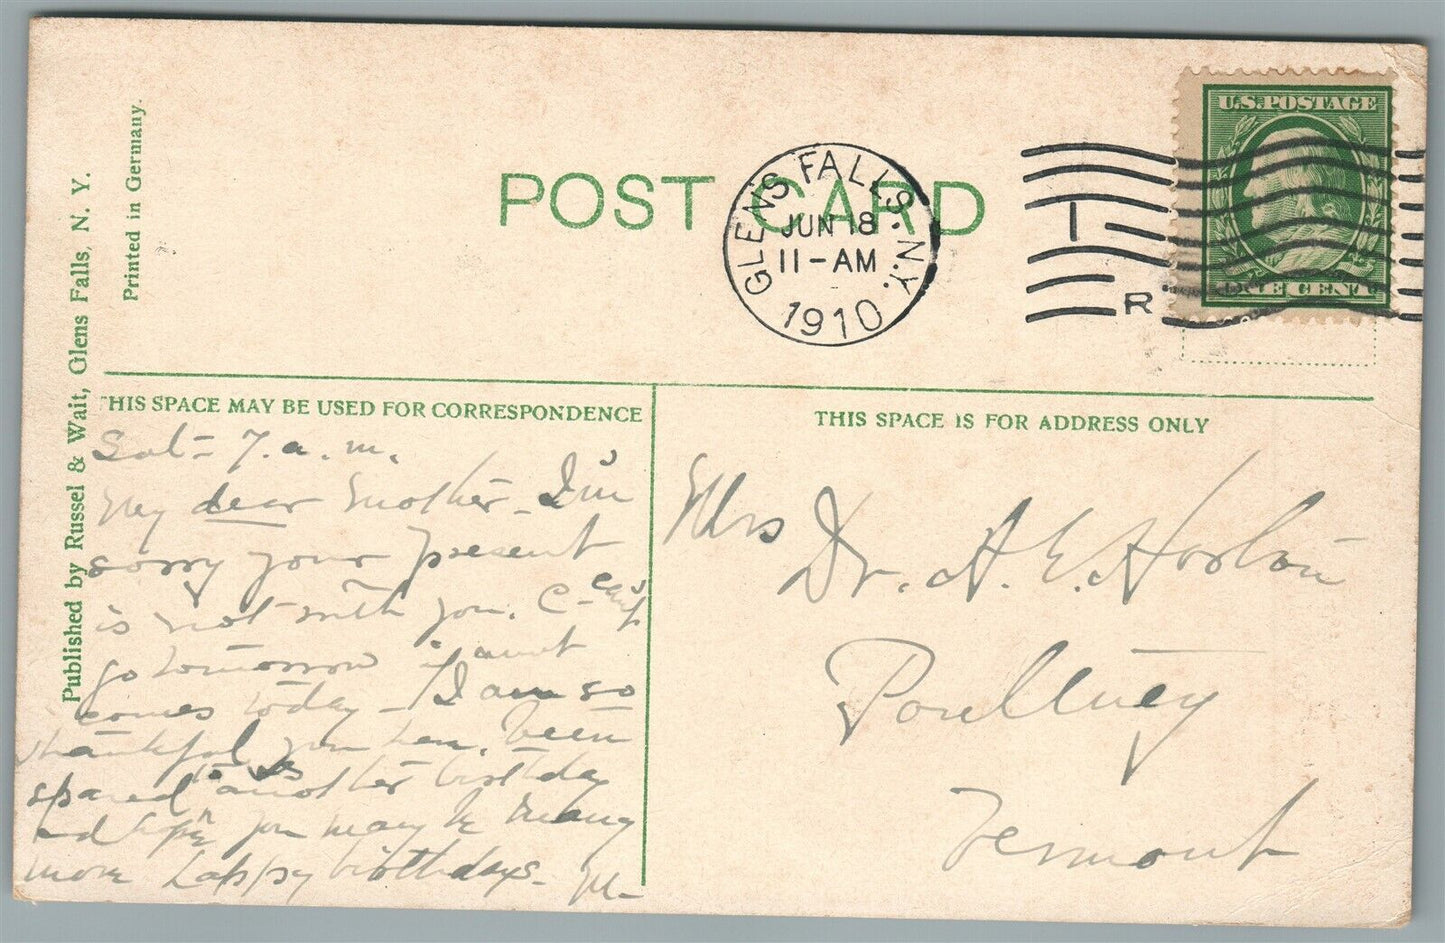 Published by Russel & Wait, Glens Falls, N. Y.
Printed in Germany.
POST CARD
GLENS FALLS. N.Y.
JUN 18
11-AM
1910
I
R.
U.S. POSTAGE
ONE CENT
THIS SPACE MAY BE USED FOR CORRESPONDENCE
THIS SPACE IS FOR ADDRESS ONLY
Sat- 7. a. m.
My dear Mother- I'm
sorry your present
is not with you. C- can't
go tomorrow if aunt
comes today- I am so
thankful you have been
spared to us another birthday
and hope you may have many
more happy birthdays- M-
Mrs Dr. A. E. Horton
Poultney
Vermont